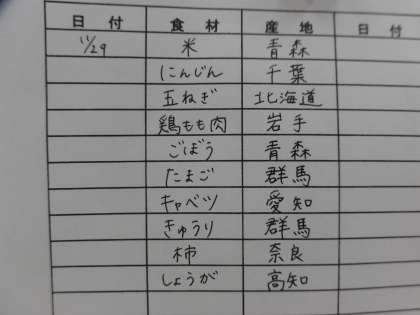 日付 食材 産地 日付
11/29 米 青森
にんじん 千葉
玉ねぎ 北海道
鶏もも肉 岩手
ごぼう 青森
たまご 群馬
キャベツ 愛知
きゅうり 群馬
柿 奈良
しょうが 高知